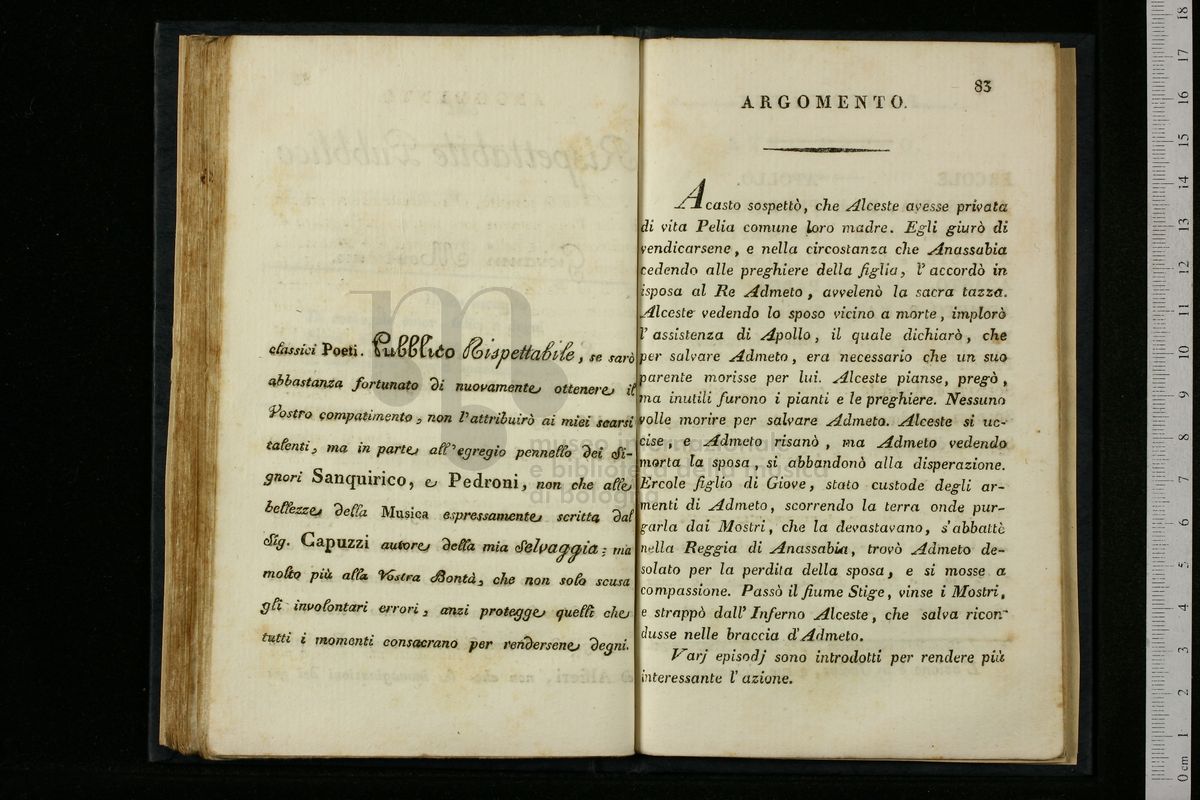 classici Poeti. Pubblico Rispettabile, se sarò
abbastanza fortunato di nuovamente ottenere il
Vostro compatimento, non l'attribuirò ai miei scarsi
talenti, ma in parte all'egregio pennello dei Si-
gnori Sanquirico, e Pedroni, non che alle
bellezze della Musica espressamente scritta dal
Sig. Capuzzi autore della mia Selvaggia; ma
molto più alla Vostra Bontà, che non solo scusa
gli involontari errori, anzi protegge quelli che
tutti i momenti consacrano per rendersene degni.
83
ARGOMENTO.
Acasto sospettò, che Alceste avesse privata
di vita Pelia comune loro madre. Egli giurò di
vendicarsene, e nella circostanza che Anassabia
cedendo alle preghiere della figlia, l'accordò in
isposa al Re Admeto, avvelenò la sacra tazza.
Alceste vedendo lo sposo vicino a morte, implorò
l'assistenza di Apollo, il quale dichiarò, che
per salvare Admeto, era necessario che un suo
parente morisse per lui. Alceste pianse, pregò,
ma inutili furono i pianti e le preghiere. Nessuno
volle morire per salvare Admeto. Alceste si uc-
cise, e Admeto risanò, ma Admeto vedendo
morta la sposa, si abbandonò alla disperazione.
Ercole figlio di Giove, stato custode degli ar-
menti di Admeto, scorrendo la terra onde pur-
garla dai Mostri, che la devastavano, s'abbattè
nella Reggia di Anassabia, trovò Admeto de-
solato per la perdita della sposa, e si mosse a
compassione. Passò il fiume Stige, vinse i Mostri,
e strappò dall'Inferno Alceste, che salva ricon-
dusse nelle braccia d'Admeto.
Varj episodj sono introdotti per rendere più
interessante l'azione.
museo internazionale
e biblioteca della musica
di bologna
0 cm 1 2 3 4 5 6 7 8 9 10 11 12 13 14 15 16 17 18